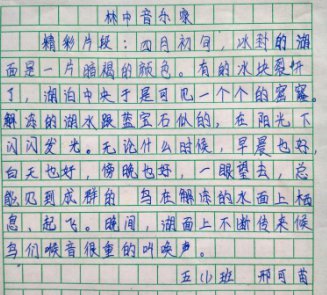 林中音乐家
精彩片段：四月初间，冰封的湖
面是一片暗褐的颜色。有的冰块裂开
了，湖泊中央于是可见一个个的窟窿。
解冻的湖水跟蓝宝石似的，在阳光下
闪闪发光。无论什么时候，早晨也好，
白天也好，傍晚也好，一眼望去，总
能见到成群的鸟在解冻的水面上栖
息、起飞。晚间，湖面上不断传来候
鸟们嗓音很重的叫唤声。
五(1)班 邢可茵